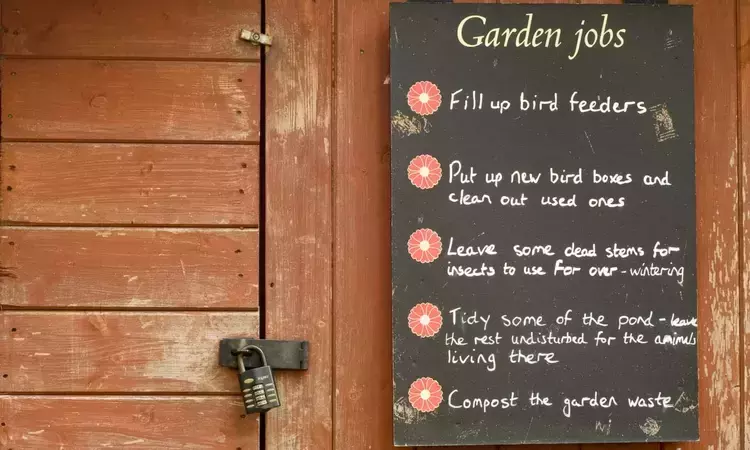 Garden jobs
Fill up bird feeders
Put up new bird boxes and
clean out used ones
Leave some dead stems for
insects to use for over-wintering
Tidy some of the pond - leave
the rest undisturbed for the animals
living there
Compost the garden waste